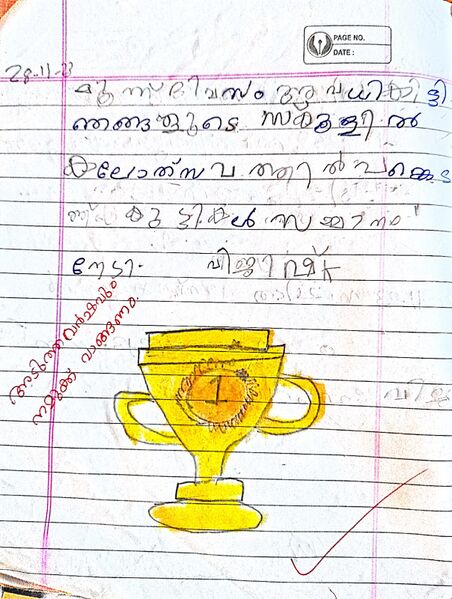 PAGE NO.
DATE :
28-11-23
മൂന്ന് ദിവസം അവധി കിട്ടി
ഞങ്ങളുടെ സ്കൂളിൽ
കലോത്സവത്തിൽ പങ്കെട
കുട്ടികൾ സമ്മാനം
നേടി.
അടുത്തവർഷവും
നമുക്ക് വാങ്ങണം.
1